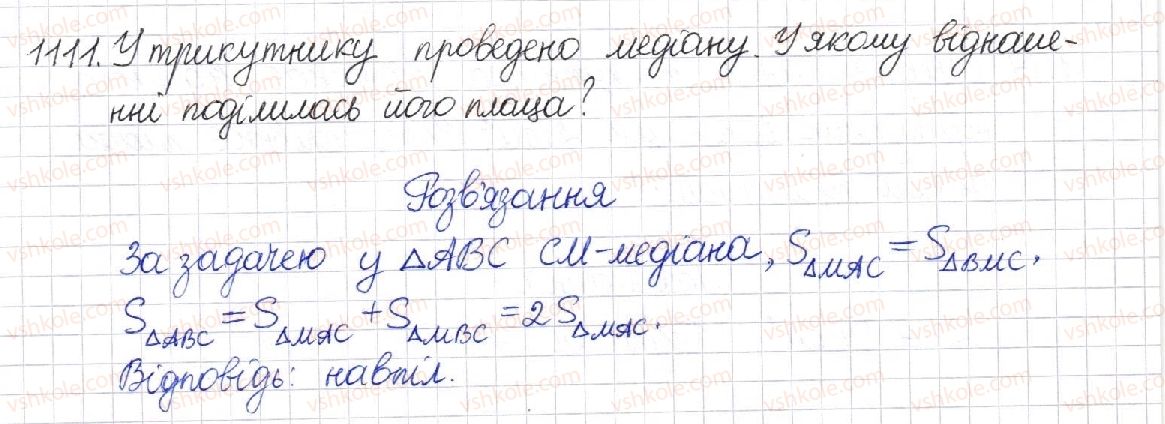 1111. У трикутнику проведено медіану. У якому відноше-
нні поділилась його площа?
Розв'язання
За задачею у △ABC CM-медіана, S△MAC = S△BMC.
S△ABC = S△MAC + S△MBC = 2S△MAC.
Відповідь: навпіл.